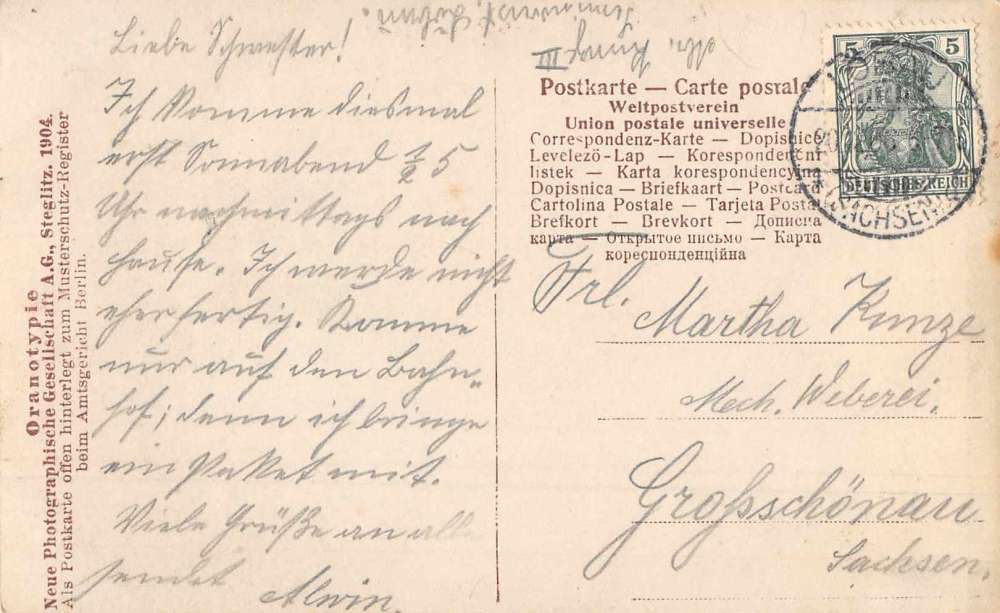 Liebe Schwester!
Ich komme diesmal
erst Sonnabend ½5
Uhr nachmittags nach
Hause. Ich werde nicht
eher fertig. Komme
nur auf den Bahn-
hof; denn ich bringe
ein Paket mit.
Viele Grüße an alle
sendet Alwin.
Oranotypie
Neue Photographische Gesellschaft A.G., Steglitz. 1904.
Als Postkarte offen hinterlegt zum Musterschutz-Register
beim Amtsgericht Berlin.
III
Postkarte — Carte postale
Weltpostverein
Union postale universelle
Correspondenz-Karte — Dopisnice
Levelező-Lap — Korespondenční
listek — Karta korespondencyjna
Dopisnica — Briefkaart — Postcard
Cartolina Postale — Tarjeta Postal
Brefkort — Brevkort — Дописна
карта — Открытое письмо — Карта
кореспонденційна
5 5
DEUTSCHES REICH
SACHSEN
Frl.
Martha Kunze
Mech. Weberei.
Großschönau
Sachsen.